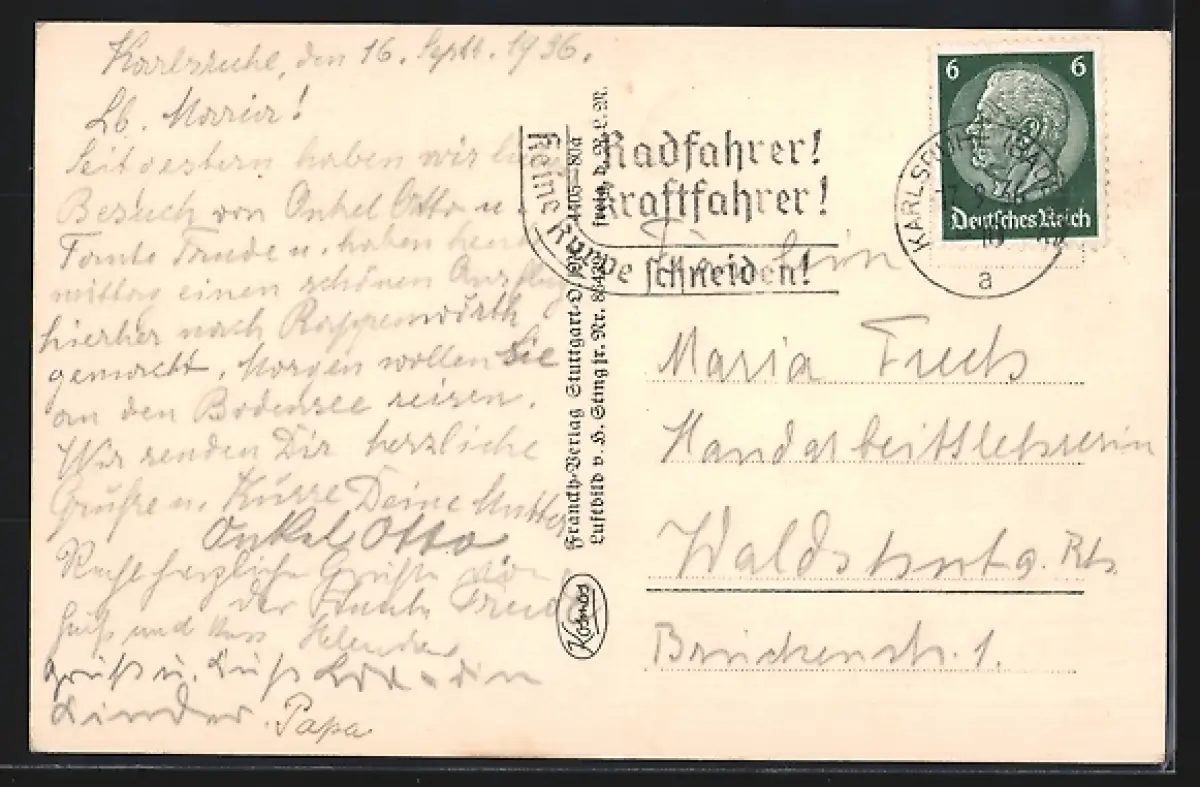 Karlsruhe, den 16. Sept. 1936.
Lb. Maria!
Seit gestern haben wir
Besuch von Onkel Otto u.
Tante Trude u. haben heut
mittag einen schönen Ausflug
hierher nach Rappenwörth
gemacht. Morgen wollen Sie
an den Bodensee reisen.
Wir senden Dir herzliche
Grüße u. Küsse Deine Mutter
Onkel Otto
Recht herzliche Grüße von
der Tante Trude
Gruß und Kuss
Gruß u. Kuß
Kinder. Papa
Franckh-Verlag Stuttgart-O
Luftbild v. H. Sting jr. Nr.
Kosmos
Radfahrer!
Kraftfahrer!
Keine Kurve schneiden!
6 6
Deutsches Reich
KARLSRUHE (BADEN)
a
Fräulein
Maria Fuchs
Handarbeitslehrerin
Waldshut a. Rh.
Brückenstr. 1.